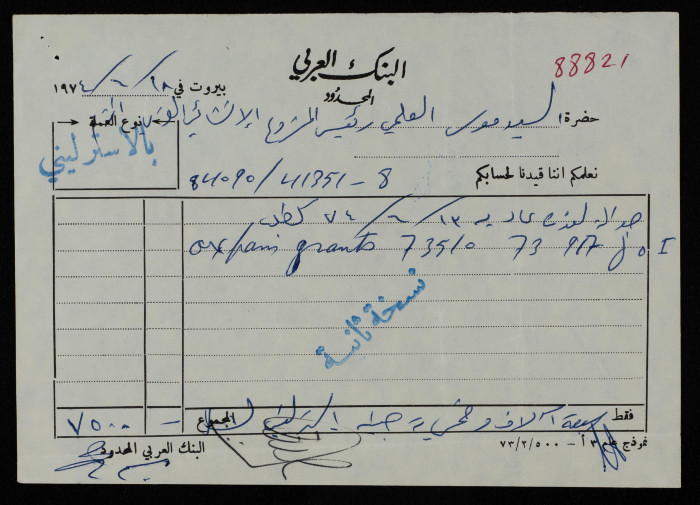 البنك العربي
المحدود
88821
بيروت في ١٨/٦/١٩٧٤
حضرة السيد موسى العلمي رئيس المشروع الإنشائي العربي
نوع العملة
بالاسترليني
نعلمكم اننا قيدنا لحسابكم 84090/41351-8
حوالة لندن عادية ١٣/٦/٧٤ كطلب
oxfam grants 73510 73
نسخة ثانية
فقط سبعة آلاف وخمسماية جنيه استرليني المجموع
٧٥٠٠ –
نموذج علم ٣ أ – ٧٣/٢/٥٠٠
البنك العربي المحدود